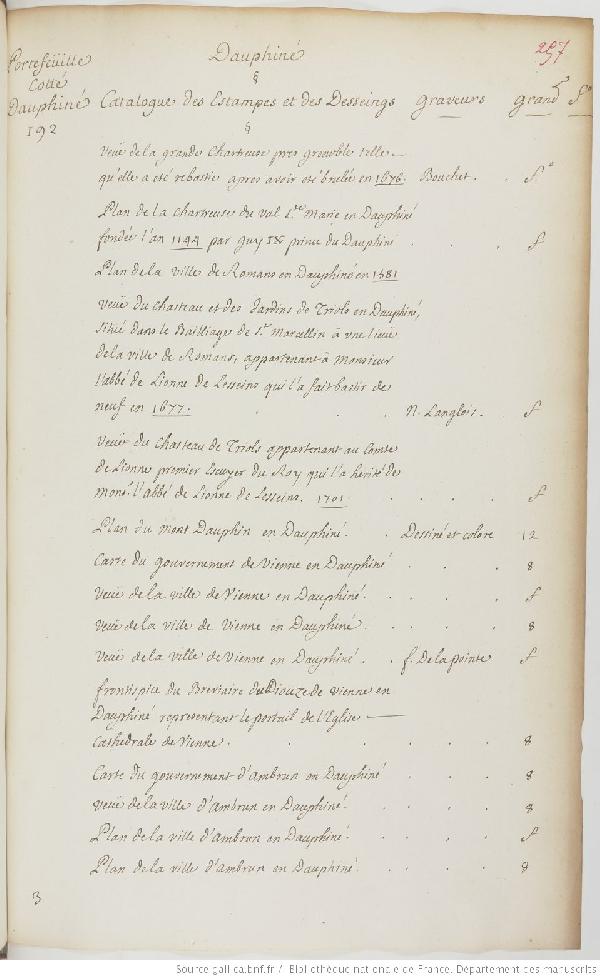 Dauphiné
257
Portefeüille
Cotté
Dauphiné
192
§
Catalogue des Estampes et des Desseings graveurs grand.r f.o
§
Veüe de la grande Chartreuse pres grenoble telle
qu'elle a eté rebastie apres avoir eté brulée en 1676. Bouchet. . f.o
Plan de la Chartreuse du val S.te Marie en Dauphiné
fondée l'an 1144 par guy IX prince du Dauphiné . . . f
Plan de la ville de Romans en Dauphiné en 1581
Veüe du Chasteau et des Jardins de Triols en Dauphiné,
situé dans le Bailliage de S.t Marcellin à vne lieüe
de la ville de Romans, appartenant à Monsieur
l'abbé de Lionne de Lesseins qui l'a fait bastir de
neuf en 1677. . . . N. Langlois. . f
Veüe du Chasteau de Triols appartenant au Comte
de Lionne premier Escuyer du Roy qui l'a herité de
mons.r l'abbé de Lionne de Lesseins. 1701 . . . . f
Plan du Mont Dauphin en Dauphiné. . Dessiné et coloré 12
Carte du gouvernement de Vienne en Dauphiné . . . 8
Veüe de la ville de Vienne en Dauphiné. . . . . f
Veüe de la ville de Vienne en Dauphiné. . . . . 8
Veüe de la ville de Vienne en Dauphiné. . f. De la pointe f
frontispice du Breviaire du Dioceze de Vienne en
Dauphiné representant le portail de l'Eglise
Cathedrale de Vienne. . . . . . 8
Carte du gouvernement d'ambrun en Dauphiné . . . 8
Veüe de la ville d'ambrun en Dauphiné. . . . 8
Plan de la ville d'ambrun en Dauphiné. . . . f
Plan de la ville d'ambrun en Dauphiné. . . . 8
3
Source gallica.bnf.fr / Bibliothèque nationale de France. Département des manuscrits